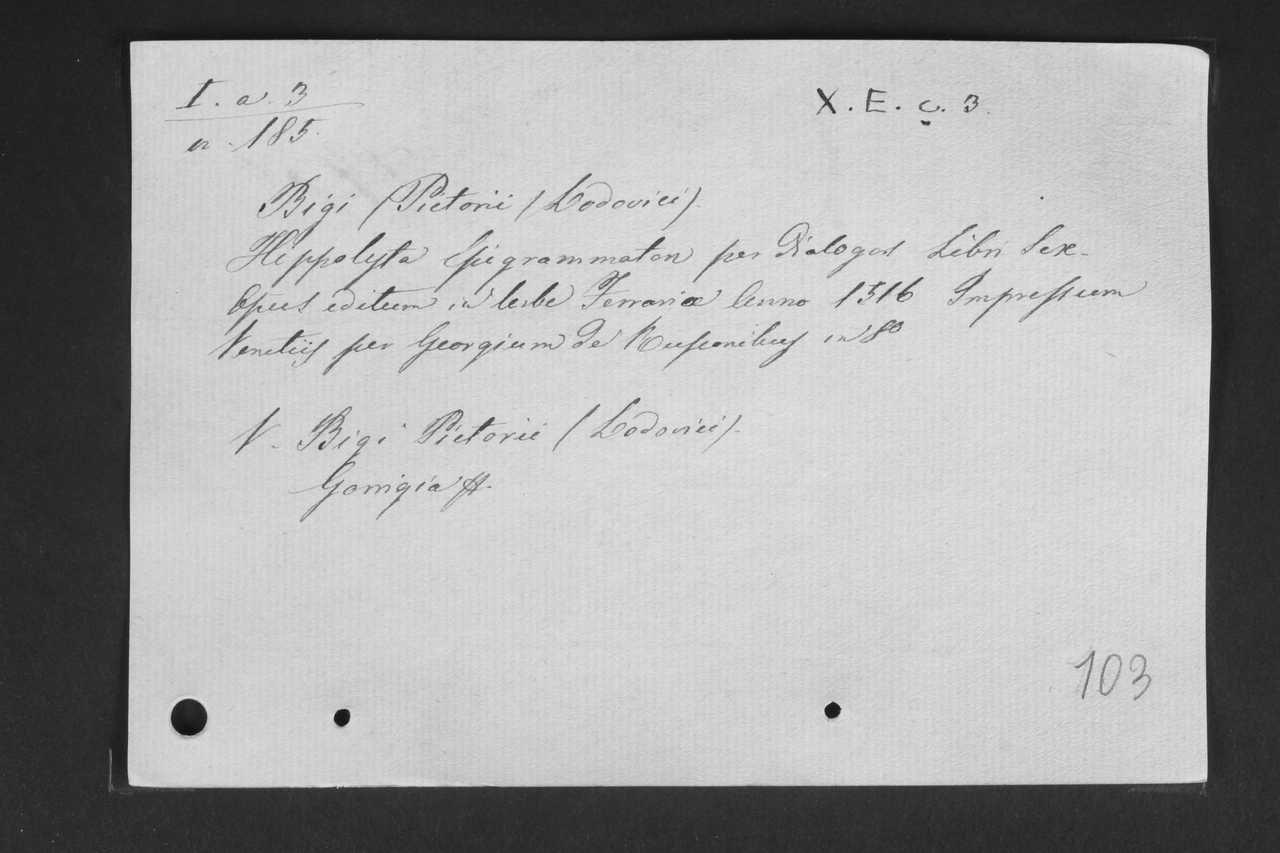 I. a. 3
X. E. c. 3.
n. 185.
Bigi (Pictorii (Lodovici).
Hippolyta Epigrammaton per Dialogos Libri Sex-
Opus editum in Urbe Ferrariæ Anno 1516 Impressum
Venetijs per Georgium de Rusponibus in 8º
V. Bigi Pictorii (Lodovici).
Gonngia A.
103